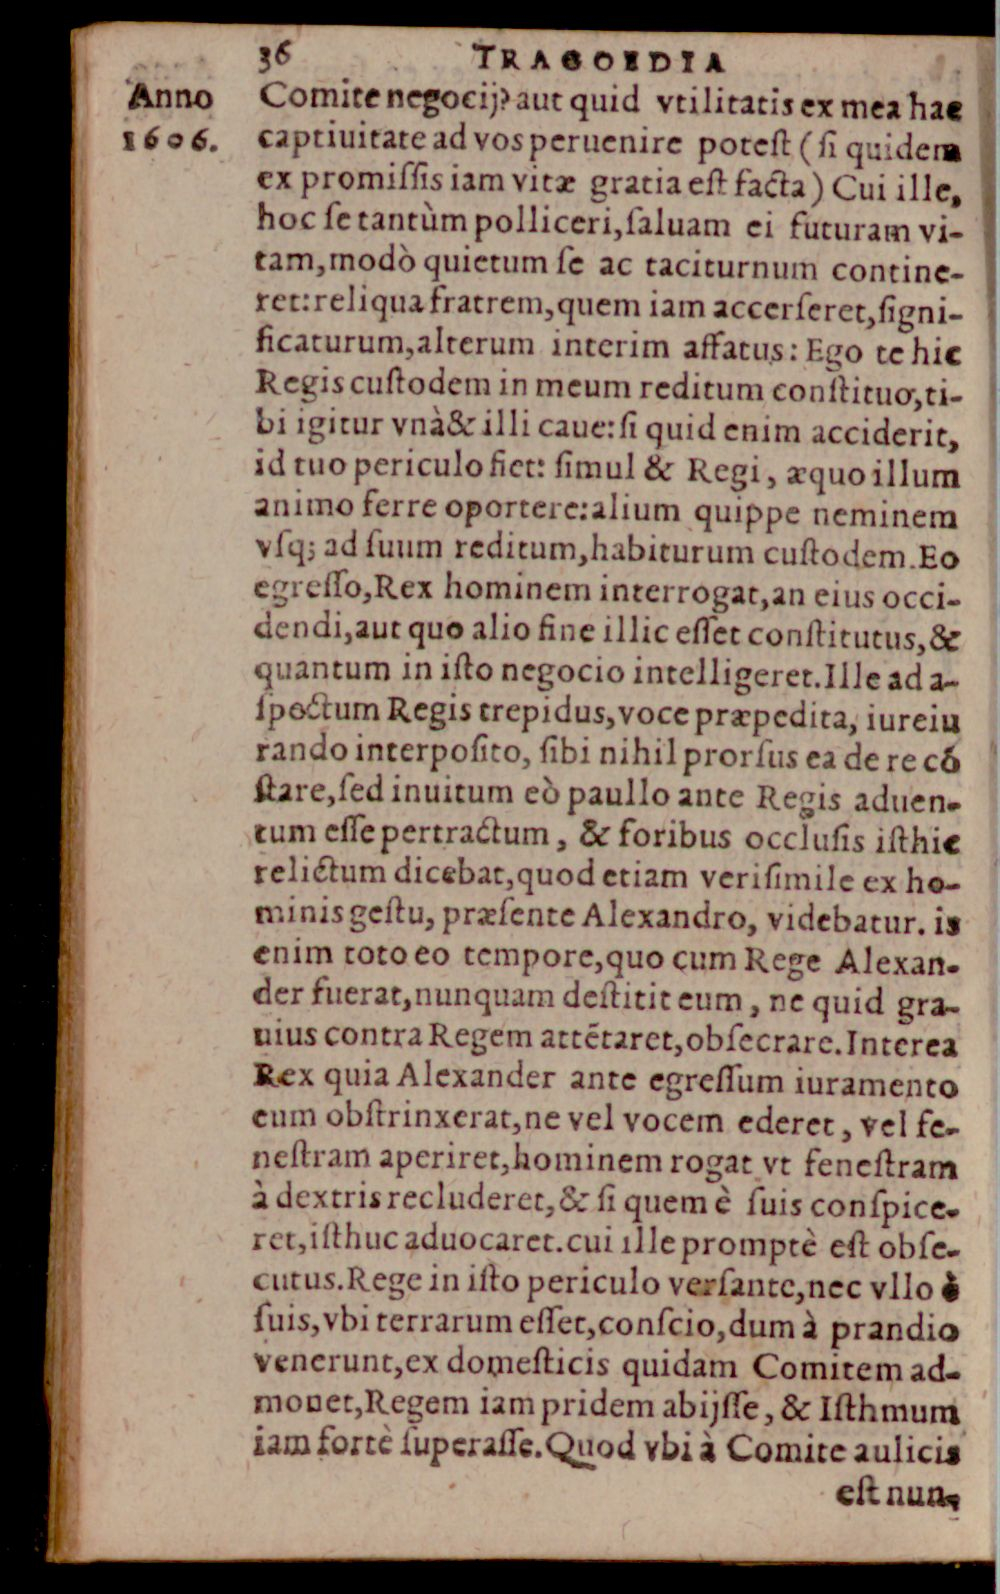 36 TRAGOEDIA
Anno
1606.
Comite negocij? aut quid vtilitatis ex mea hac
captiuitate ad vos peruenire poteſt (ſi quidem
ex promiſſis iam vitæ gratia eſt facta) Cui ille,
hoc ſe tantùm polliceri, ſaluam ei futuram vi-
tam, modò quietum ſe ac taciturnum contine-
ret: reliqua fratrem, quem iam accerſeret, ſigni-
ficaturum, alterum interim affatus: Ego te hic
Regis cuſtodem in meum reditum conſtituo, ti-
bi igitur vnà & illi caue: ſi quid enim acciderit,
id tuo periculo fiet: ſimul & Regi, æquo illum
animo ferre oportere: alium quippe neminem
vſq; ad ſuum reditum, habiturum cuſtodem. Eo
egreſſo, Rex hominem interrogat, an eius occi-
dendi, aut quo alio fine illic eſſet conſtitutus, &
quantum in iſto negocio intelligeret. Ille ad a-
ſpectum Regis trepidus, voce præpedita, iureiu
rando interpoſito, ſibi nihil prorſus ea de re cõ
ſtare, ſed inuitum eò paullo ante Regis aduen-
tum eſſe pertractum, & foribus occluſis iſthic
relictum dicebat, quod etiam veriſimile ex ho-
minis geſtu, præſente Alexandro, videbatur. is
enim toto eo tempore, quo cum Rege Alexan-
der fuerat, nunquam deſtitit eum, ne quid gra-
uius contra Regem attẽtaret, obſecrare. Interea
Rex quia Alexander ante egreſſum iuramento
eum obſtrinxerat, ne vel vocem ederet, vel fe-
neſtram aperiret, hominem rogat vt feneſtram
à dextris recluderet, & ſi quem è ſuis conſpice-
ret, iſthuc aduocaret. cui ille promptè eſt obſe-
cutus. Rege in iſto periculo verſante, nec vllo è
ſuis, vbi terrarum eſſet, conſcio, dum à prandio
venerunt, ex domeſticis quidam Comitem ad-
monet, Regem iam pridem abijſſe, & Iſthmum
iam fortè ſuperaſſe. Quod vbi à Comite aulicis
eſt nun-